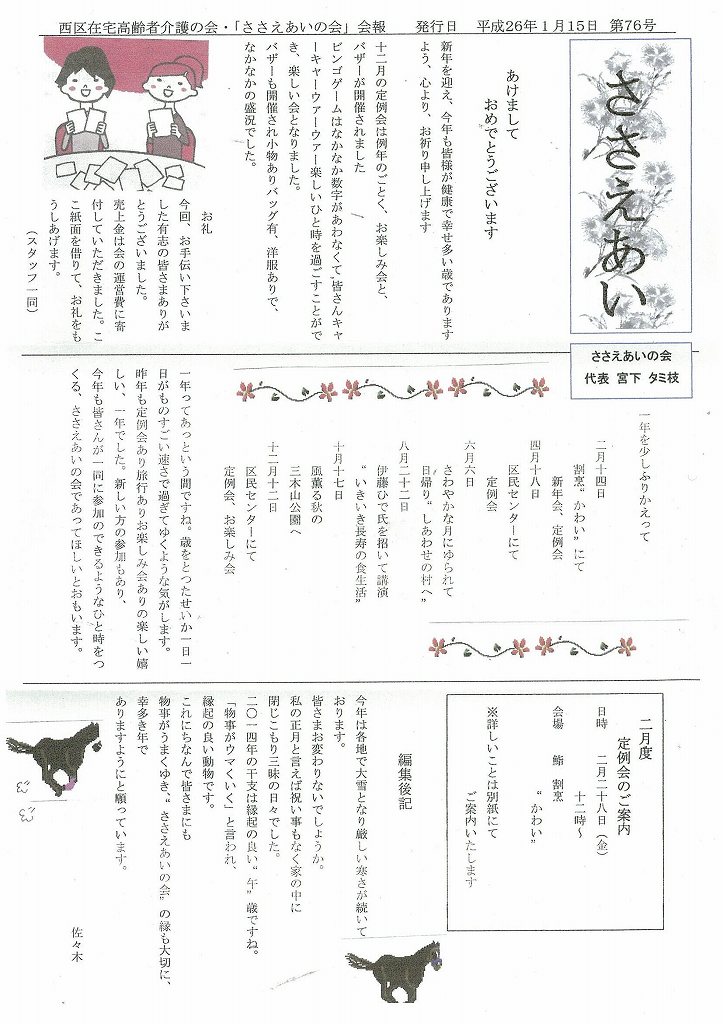 西区在宅高齢者介護の会・「ささえあいの会」会報　　発行日　平成26年1月15日　第76号
ささえあい
ささえあいの会
代表　宮下　タミ枝
あけまして
おめでとうございます
新年を迎え、今年も皆様が健康で幸せ多い歳であります
よう、心より、お祈り申し上げます
十二月の定例会は例年のごとく、お楽しみ会と、
バザーが開催されました
ビンゴゲームはなかなか数字があわなくて、皆さんキャ
ーキャーウァーウァー楽しいひと時を過ごすことがで
き、楽しい会となりました。
バザーも開催され小物ありバッグ有、洋服ありで、
なかなかの盛況でした。
お礼
今回、お手伝い下さいま
した有志の皆さまありが
とうございました。
売上金は会の運営費に寄
付していただきました。こ
こ紙面を借りて、お礼をも
うしあげます。
（スタッフ一同）
一年を少しふりかえって
二月十四日
割烹“かわい”にて
新年会、定例会
四月十八日
区民センターにて
定例会
六月六日
さわやかな月にゆられて
日帰り“しあわせの村へ”
八月二十二日
伊藤ひで氏を招いて講演
“いきいき長寿の食生活”
十月十七日
風薫る秋の
三木山公園へ
十二月十二日
区民センターにて
定例会、お楽しみ会
一年ってあっという間ですね。歳をとったせいか一日一
日がものすごい速さで過ぎてゆくような気がします。
昨年も定例会あり旅行ありお楽しみ会ありの楽しい嬉
しい、一年でした。新しい方の参加もあり、
今年も皆さんが一同に参加のできるようなひと時をつ
くる、ささえあいの会であってほしいとおもいます。
二月度
定例会のご案内
日時　二月二十八日（金）
十二時～
会場　鮨　割烹
“かわい”
※詳しいことは別紙にて
ご案内いたします
編集後記
今年は各地で大雪となり厳しい寒さが続いて
おります。
皆さまお変わりないでしょうか。
私の正月と言えば祝い事もなく家の中に
閉じこもり三昧の日々でした。
二〇一四年の干支は縁起の良い“午”歳ですね。
「物事がウマくいく」と言われ、
縁起の良い動物です。
これにちなんで皆さまにも
物事がうまくゆき、“ささえあいの会”の縁も大切に、
幸多き年で
ありますようにと願っています。
佐々木